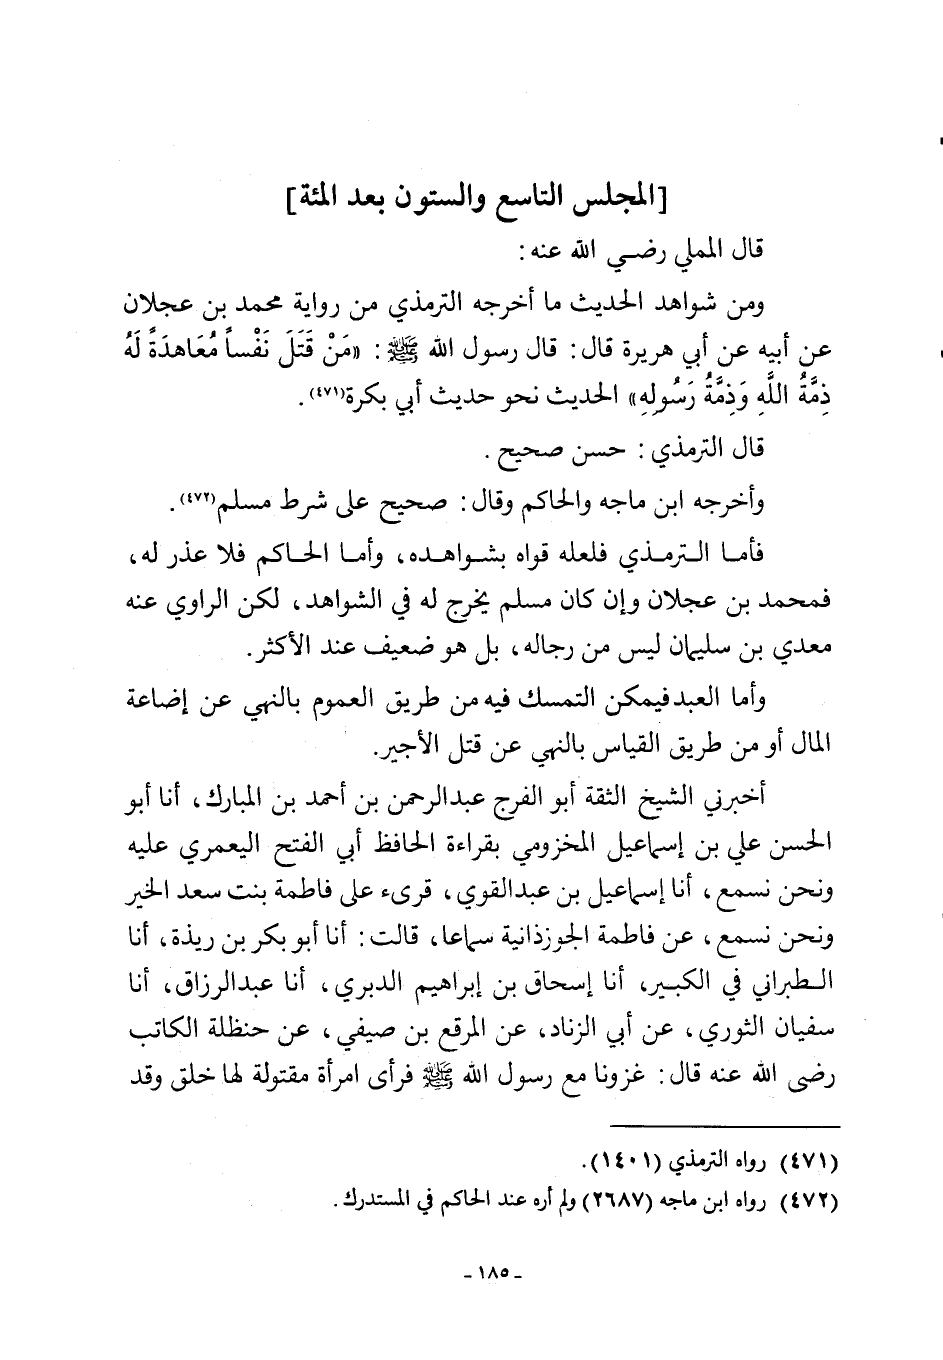 [المجلس التاسع والستون بعد المئة]
قال المملي رضي الله عنه :
ومن شواهد الحديث ما أخرجه الترمذي من رواية محمد بن عجلان
عن أبيه عن أبي هريرة قال : قال رسول الله ﷺ : «مَنْ قَتَلَ نَفْساً مُعَاهدَةً لَهُ
ذِمَّةُ اللَّهِ وَذِمَّةُ رَسُولِهِ» الحديث نحو حديث أبي بكرة(٤٧١) .
قال الترمذي : حسن صحيح .
وأخرجه ابن ماجه والحاكم وقال : صحيح على شرط مسلم(٤٧٢) .
فأما الترمذي فلعله قواه بشواهده، وأما الحاكم فلا عذر له،
فمحمد بن عجلان وإن كان مسلم يخرج له في الشواهد، لكن الراوي عنه
معدي بن سليمان ليس من رجاله، بل هو ضعيف عند الأكثر.
وأما العبد فيمكن التمسك فيه من طريق العموم بالنهي عن إضاعة
المال أو من طريق القياس بالنهي عن قتل الأجير.
أخبرني الشيخ الثقة أبو الفرج عبدالرحمن بن أحمد بن المبارك، أنا أبو
الحسن علي بن إسماعيل المخزومي بقراءة الحافظ أبي الفتح اليعمري عليه
ونحن نسمع، أنا إسماعيل بن عبدالقوي، قرىء على فاطمة بنت سعد الخير
ونحن نسمع، عن فاطمة الجوزذانية سماعا، قالت : أنا أبو بكر بن ريذة، أنا
الطبراني في الكبير، أنا إسحاق بن إبراهيم الدبري، أنا عبدالرزاق، أنا
سفيان الثوري، عن أبي الزناد، عن المرقع بن صيفي، عن حنظلة الكاتب
رضى الله عنه قال : غزونا مع رسول الله ﷺ فرأى امرأة مقتولة لها خلق وقد
(٤٧١) رواه الترمذي (١٤٠١).
(٤٧٢) رواه ابن ماجه (٢٦٨٧) ولم أره عند الحاكم في المستدرك .
- ١٨٥ -